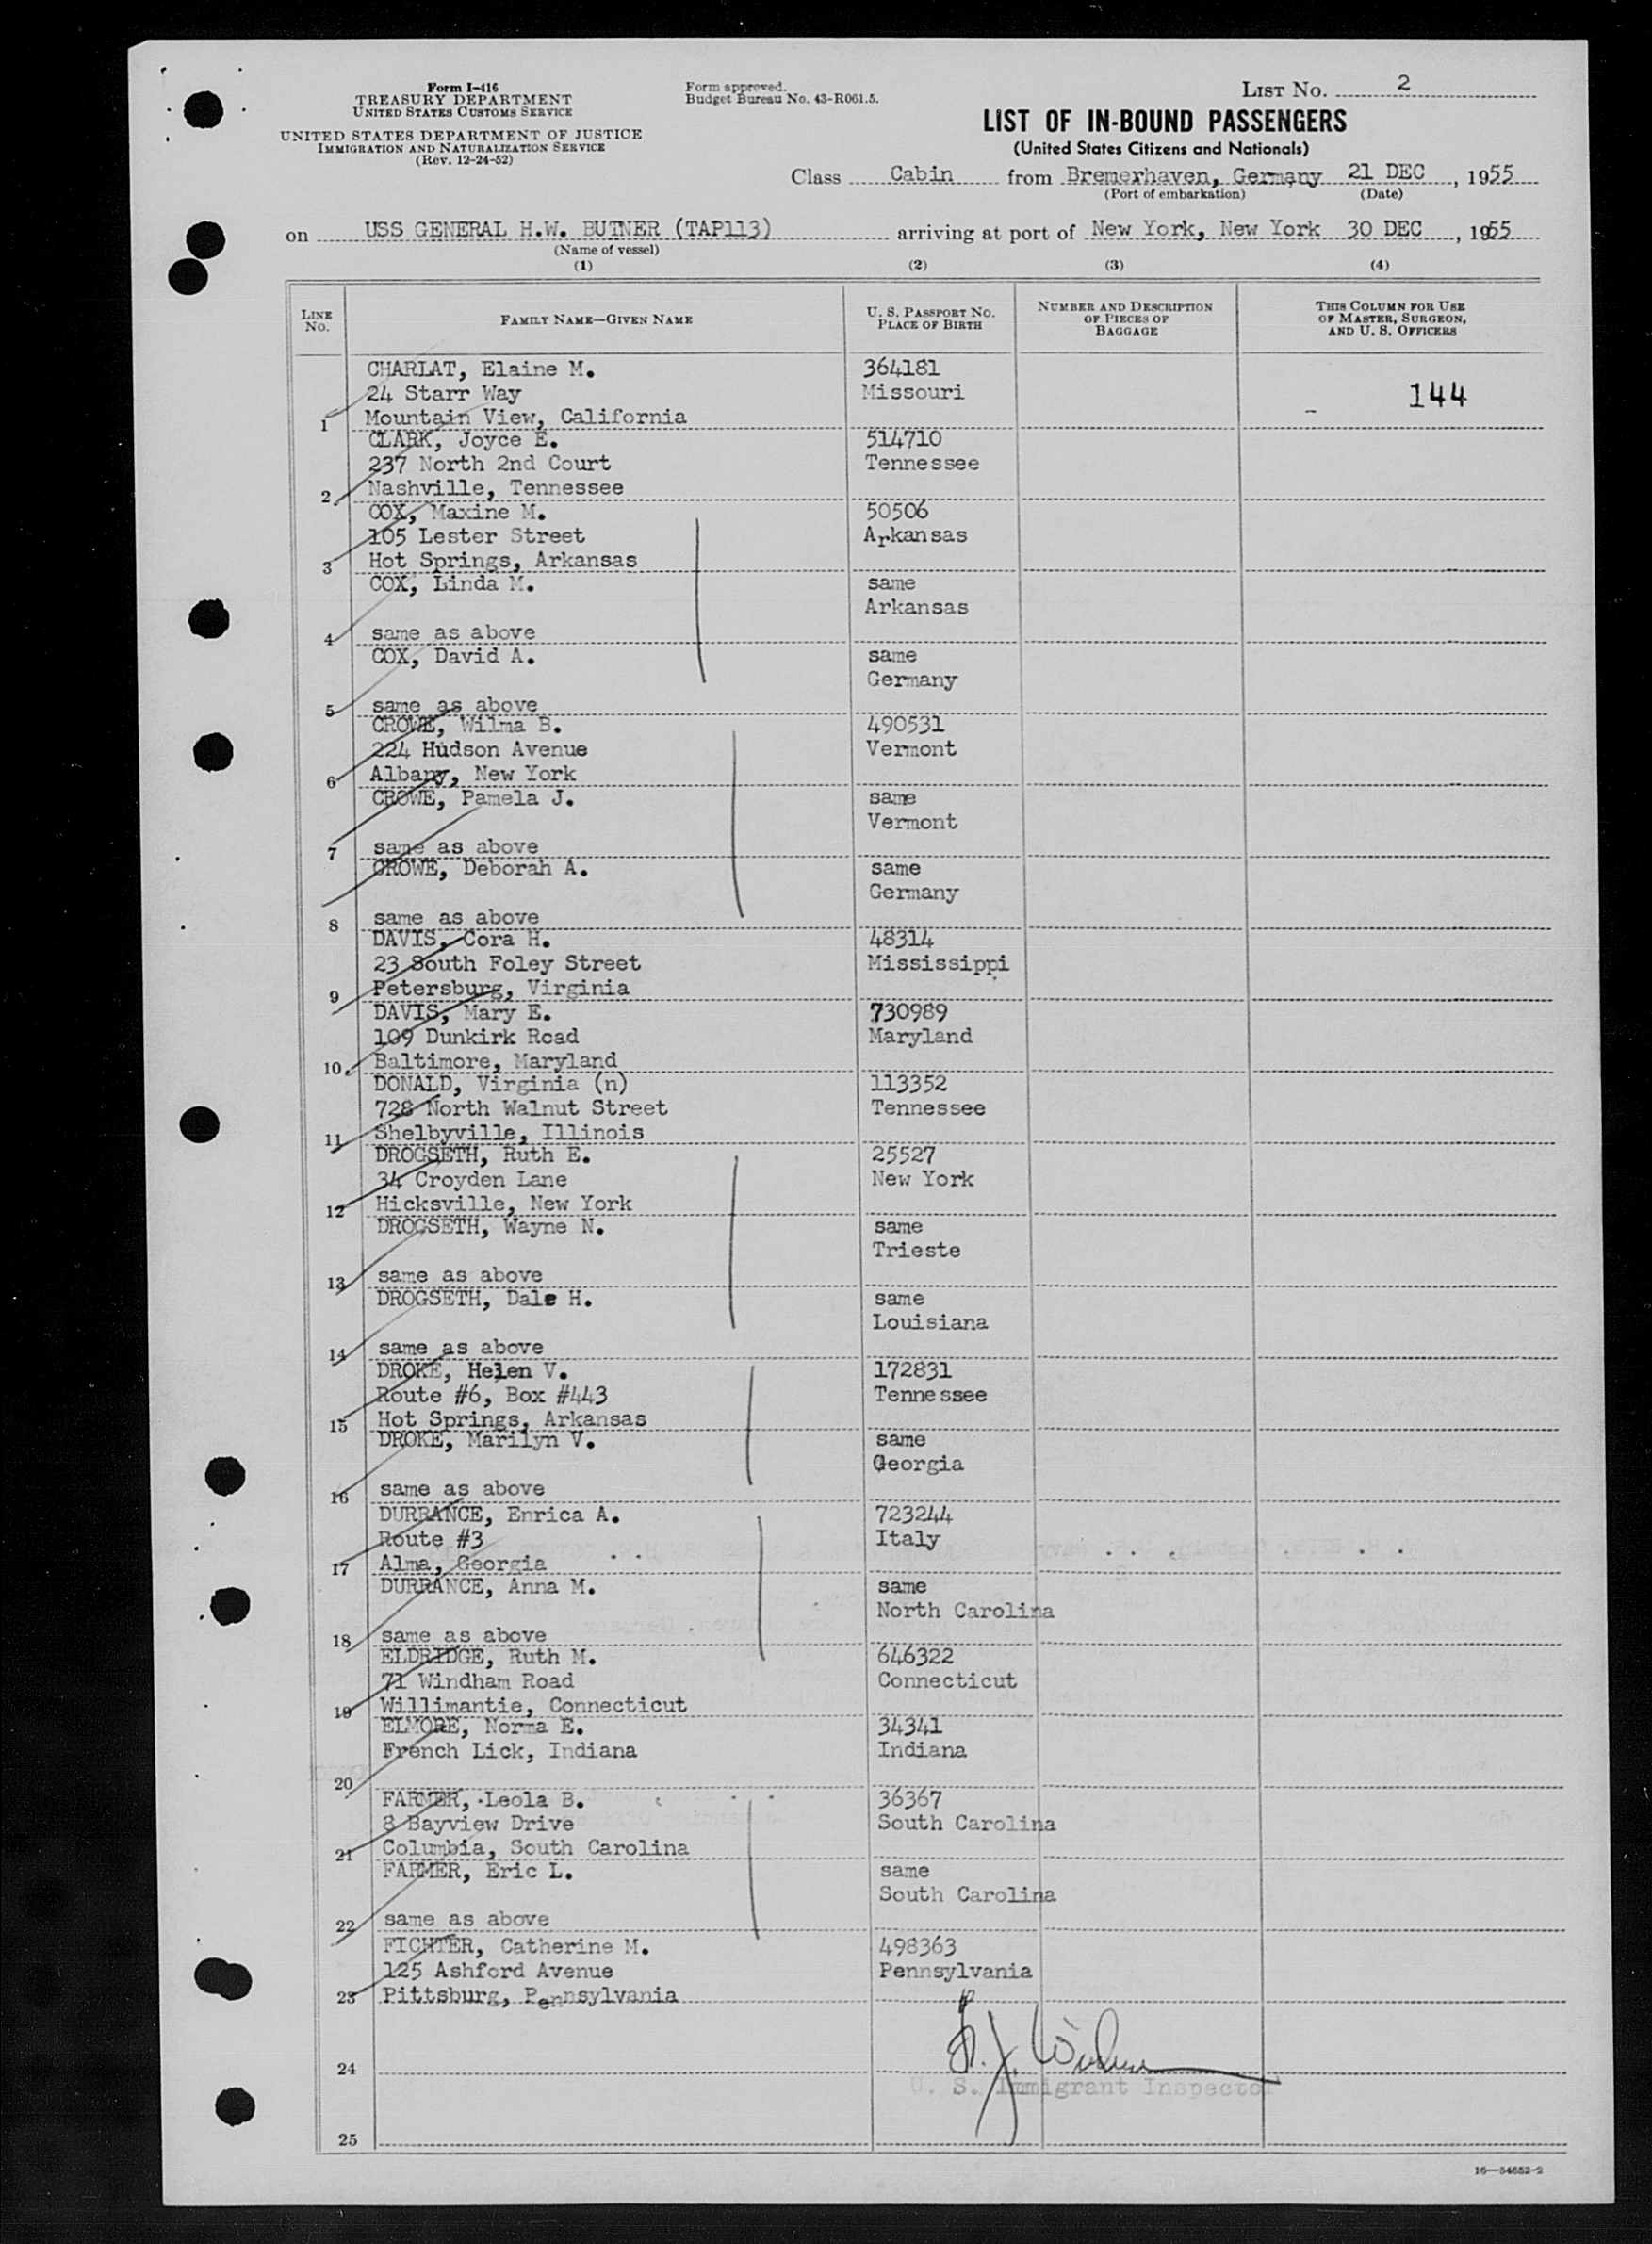 Form I-416
TREASURY DEPARTMENT
UNITED STATES CUSTOMS SERVICE
UNITED STATES DEPARTMENT OF JUSTICE
IMMIGRATION AND NATURALIZATION SERVICE
(Rev. 12-24-52)
Form approved.
Budget Bureau No. 43-R061.5.
LIST NO. 2
LIST OF IN-BOUND PASSENGERS
(United States Citizens and Nationals)
Class Cabin from Bremerhaven, Germany 21 DEC, 1955
(Port of embarkation) (Date)
on USS GENERAL H.W. BUTNER (TAP113) arriving at port of New York, New York 30 DEC, 1955
(Name of vessel)
(1) (2) (3) (4)
LINE NO.
FAMILY NAME—GIVEN NAME
U. S. PASSPORT NO.
PLACE OF BIRTH
NUMBER AND DESCRIPTION
OF PIECES OF
BAGGAGE
THIS COLUMN FOR USE
OF MASTER, SURGEON,
AND U. S. OFFICERS
CHARLAT, Elaine M. 364181
24 Starr Way Missouri 144
1 Mountain View, California
CLARK, Joyce E. 514710
237 North 2nd Court Tennessee
2 Nashville, Tennessee
COX, Maxine M. 50506
105 Lester Street Arkansas
3 Hot Springs, Arkansas
COX, Linda M. same
Arkansas
4 same as above
COX, David A. same
Germany
5 same as above
CROWE, Wilma B. 490531
224 Hudson Avenue Vermont
6 Albany, New York
CROWE, Pamela J. same
Vermont
7 same as above
CROWE, Deborah A. same
Germany
8 same as above
DAVIS, Cora H. 48314
23 South Foley Street Mississippi
9 Petersburg, Virginia
DAVIS, Mary E. 730989
109 Dunkirk Road Maryland
10 Baltimore, Maryland
DONALD, Virginia (n) 113352
728 North Walnut Street Tennessee
11 Shelbyville, Illinois
DROGSETH, Ruth E. 25527
34 Croyden Lane New York
12 Hicksville, New York
DROGSETH, Wayne N. same
Trieste
13 same as above
DROGSETH, Dale H. same
Louisiana
14 same as above
DROKE, Helen V. 172831
Route #6, Box #443 Tennessee
15 Hot Springs, Arkansas
DROKE, Marilyn V. same
Georgia
16 same as above
DURRANCE, Enrica A. 723244
Route #3 Italy
17 Alma, Georgia
DURRANCE, Anna M. same
North Carolina
18 same as above
ELDRIDGE, Ruth M. 646322
71 Windham Road Connecticut
19 Willimantie, Connecticut
ELMORE, Norma E. 34341
French Lick, Indiana Indiana
20
FARMER, Leola B. 36367
8 Bayview Drive South Carolina
21 Columbia, South Carolina
FARMER, Eric L. same
South Carolina
22 same as above
FICHTER, Catherine M. 498363
125 Ashford Avenue Pennsylvania
23 Pittsburg, Pennsylvania
24
U. S. Immigrant Inspector
25
16—54652-2